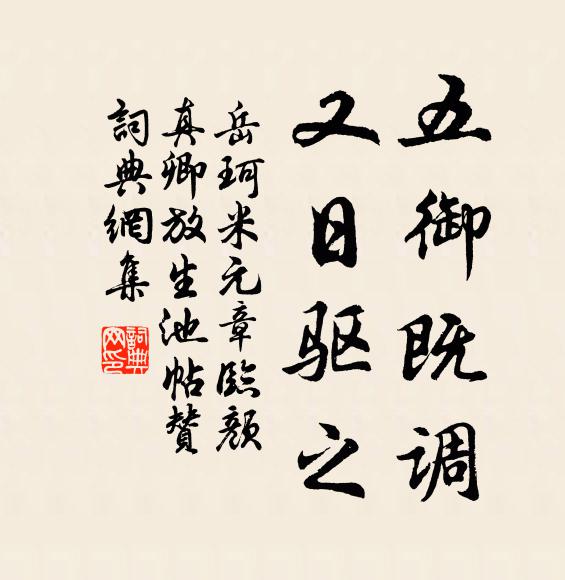 五御既调
又日驱之
岳珂米元章臨顏
真卿放生池帖贊
詞典網集
詞典網印